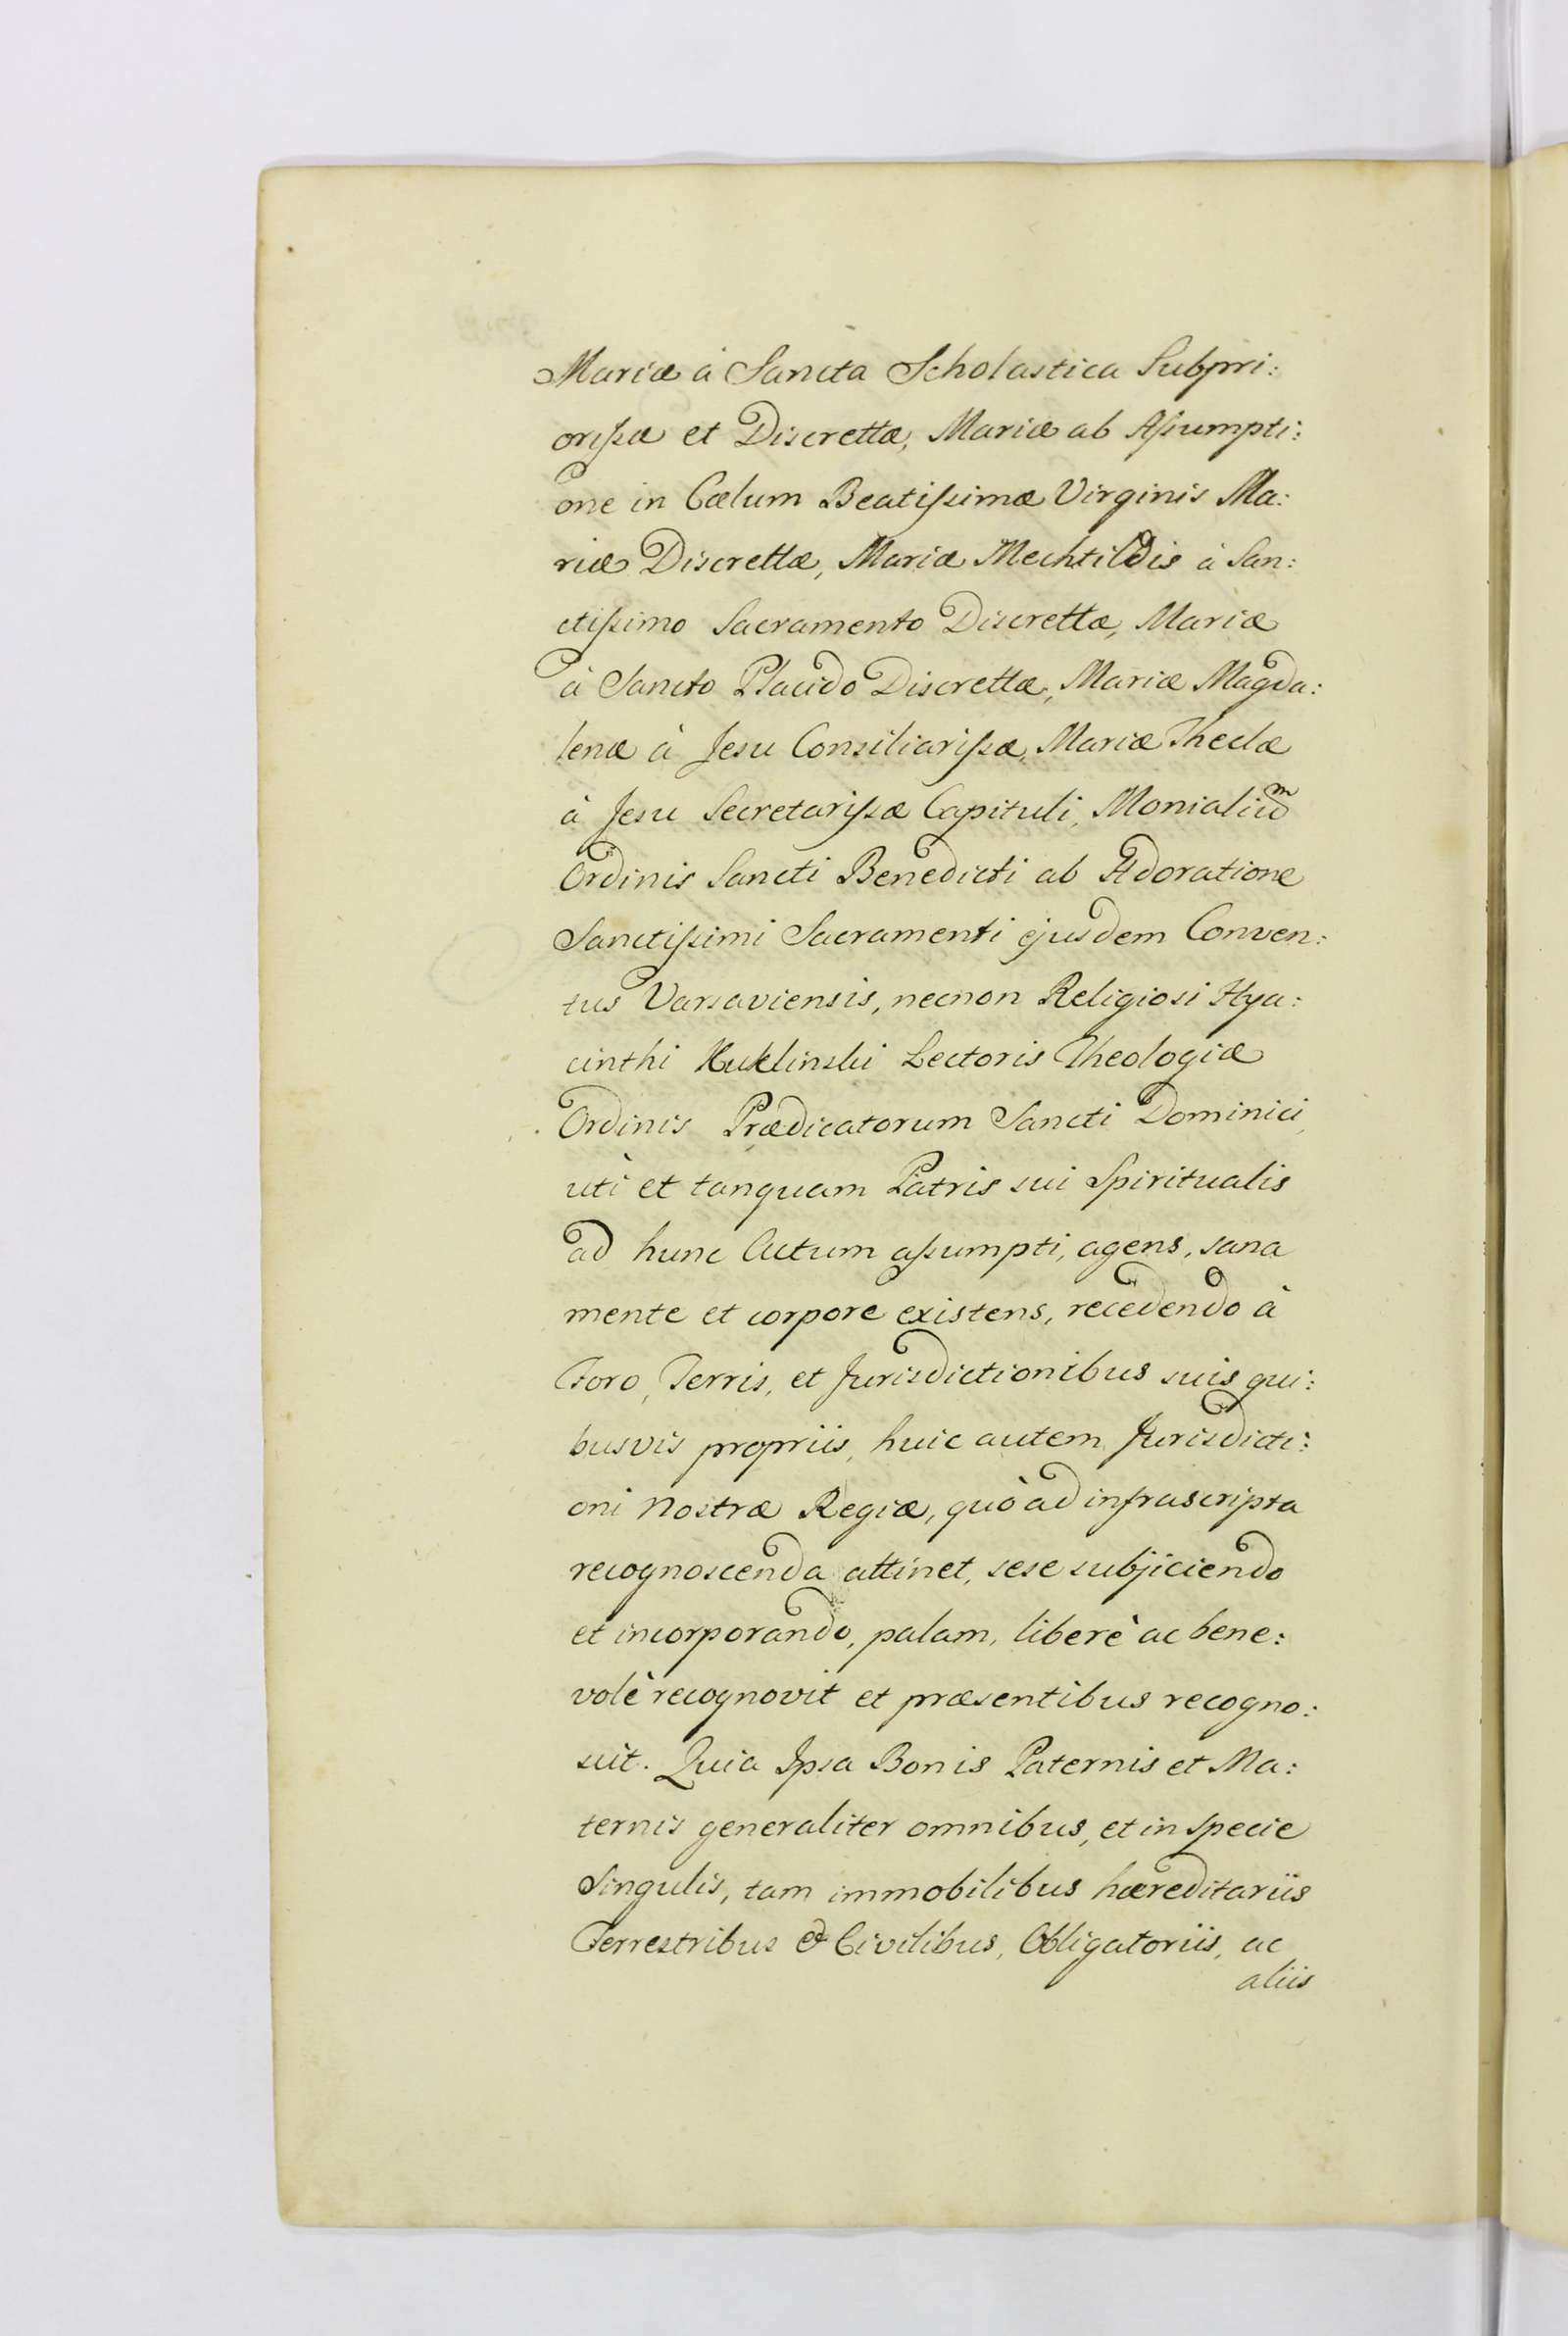 Mariæ à Sancta Scholastica Subpri:
orißæ et Discrettæ, Mariæ ab Aßumpti:
one in Cælum Beatißimæ Virginis Ma:
riæ Discrettæ, Mariæ Mechtildis à San:
ctißimo Sacramento Discrettæ, Mariæ
à Sancto Placido Discrettæ, Mariæ Magda:
lenæ à Jesu Consiliarißæ, Mariæ Theclæ
à Jesu Secretarißæ Capituli, Monialium
Ordinis Sancti Benedicti ab Adoratione
Sanctißimi Sacramenti ejusdem Conven:
tus Varsaviensis, necnon Religiosi Hya:
cinthi Kuklinski Lectoris Theologiæ
Ordinis Prædicatorum Sancti Dominici,
uti et tanquam Patris sui Spiritualis
ad hunc Actum aßumpti, agens, sana
mente et corpore existens, recedendo à
Foro, Terris, et Jurisdictionibus suis qui:
busvis propriis, huic autem Jurisdicti:
oni Nostræ Regiæ, quò ad infrascripta
recognoscenda attinet, sese subjiciendo
et incorporando, palam, liberè ac bene:
volè recognovit et præsentibus recogno:
scit. Quia Ipsa Bonis Paternis et Ma:
ternis generaliter omnibus, et in specie
Singulis, tam immobilibus hæreditariis
Terrestribus & Civilibus, Obligatoriis, ac
aliis